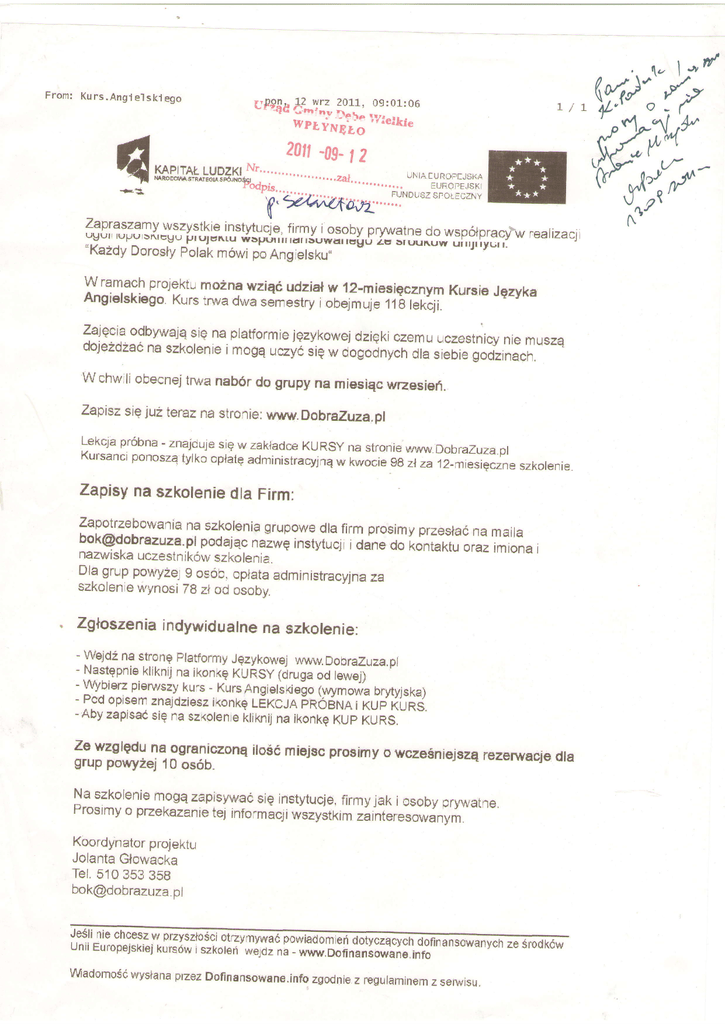 From: Kurs.Angielskiego
pon., 12 wrz 2011, 09:01:06
1 / 1
Urząd Gminy Dębe Wielkie
WPŁYNĘŁO
2011 -09- 12
Nr..................zał..............
Podpis..............................
p. Sekretarz
KAPITAŁ LUDZKI
NARODOWA STRATEGIA SPÓJNOŚCI
UNIA EUROPEJSKA
EUROPEJSKI
FUNDUSZ SPOŁECZNY
Pani
13.09.2011
Zapraszamy wszystkie instytucje, firmy i osoby prywatne do współpracy w realizacji
ogólnopolskiego projektu współfinansowanego ze środków unijnych.
"Każdy Dorosły Polak mówi po Angielsku"
W ramach projektu można wziąć udział w 12-miesięcznym Kursie Języka
Angielskiego. Kurs trwa dwa semestry i obejmuje 118 lekcji.
Zajęcia odbywają się na platformie językowej dzięki czemu uczestnicy nie muszą
dojeżdżać na szkolenie i mogą uczyć się w dogodnych dla siebie godzinach.
W chwili obecnej trwa nabór do grupy na miesiąc wrzesień.
Zapisz się już teraz na stronie: www.DobraZuza.pl
Lekcja próbna - znajduje się w zakładce KURSY na stronie www.DobraZuza.pl
Kursanci ponoszą tylko opłatę administracyjną w kwocie 98 zł za 12-miesięczne szkolenie.
Zapisy na szkolenie dla Firm:
Zapotrzebowania na szkolenia grupowe dla firm prosimy przesłać na maila
bok@dobrazuza.pl podając nazwę instytucji i dane do kontaktu oraz imiona i
nazwiska uczestników szkolenia.
Dla grup powyżej 9 osób, opłata administracyjna za
szkolenie wynosi 78 zł od osoby.
Zgłoszenia indywidualne na szkolenie:
- Wejdź na stronę Platformy Językowej www.DobraZuza.pl
- Następnie kliknij na ikonkę KURSY (druga od lewej)
- Wybierz pierwszy kurs - Kurs Angielskiego (wymowa brytyjska)
- Pod opisem znajdziesz ikonkę LEKCJA PRÓBNA i KUP KURS.
- Aby zapisać się na szkolenie kliknij na ikonkę KUP KURS.
Ze względu na ograniczoną ilość miejsc prosimy o wcześniejszą rezerwacje dla
grup powyżej 10 osób.
Na szkolenie mogą zapisywać się instytucje, firmy jak i osoby prywatne.
Prosimy o przekazanie tej informacji wszystkim zainteresowanym.
Koordynator projektu
Jolanta Głowacka
Tel. 510 353 358
bok@dobrazuza.pl
Jeśli nie chcesz w przyszłości otrzymywać powiadomień dotyczących dofinansowanych ze środków
Unii Europejskiej kursów i szkoleń wejdz na - www.Dofinansowane.info
Wiadomość wysłana przez Dofinansowane.info zgodnie z regulaminem z serwisu.